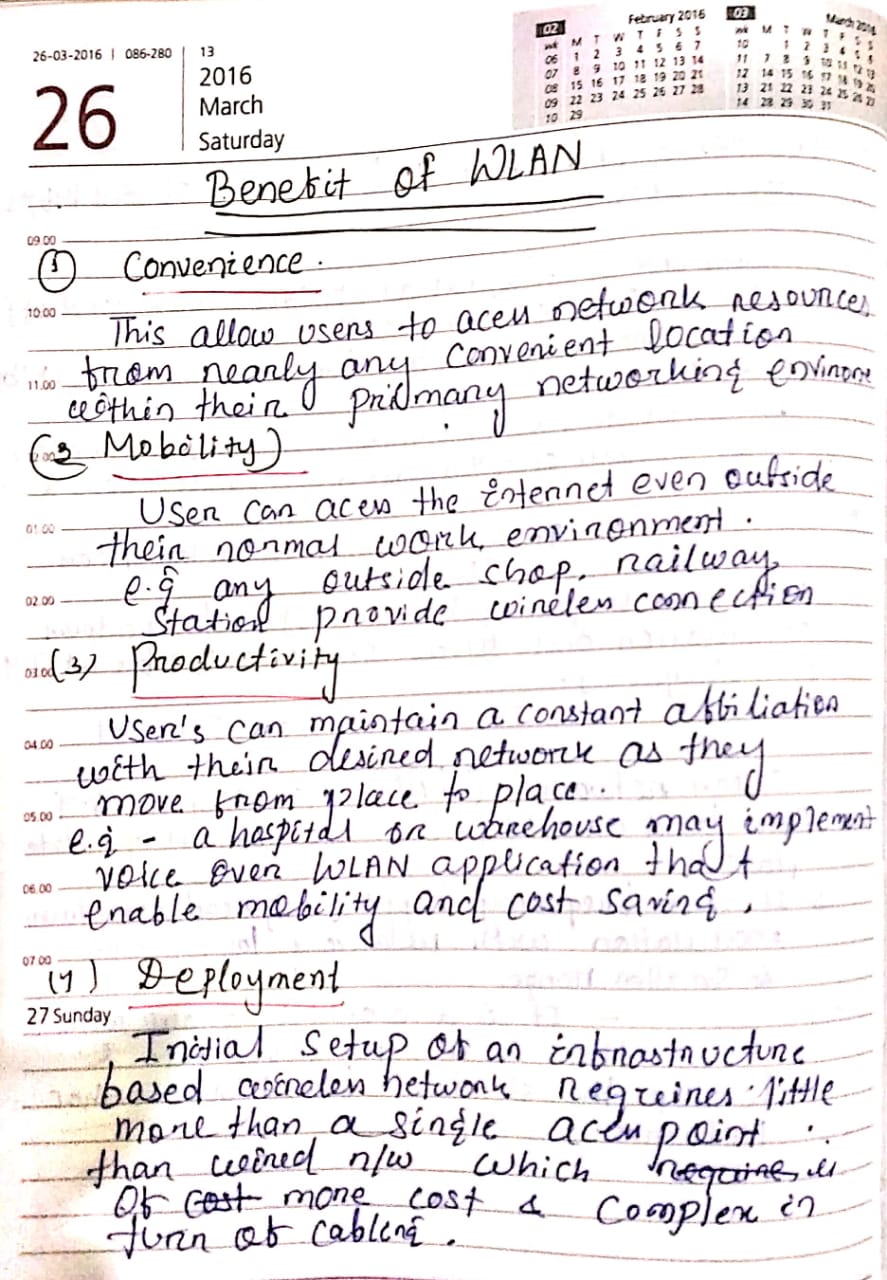 26-03-2016 | 086-280
26
13
2016
March
Saturday
02 February 2016
wk M T W T F S S
06 1 2 3 4 5 6 7
07 8 9 10 11 12 13 14
08 15 16 17 18 19 20 21
09 22 23 24 25 26 27 28
10 29
03 March 2016
wk M T W T F S S
10 1 2 3 4 5 6
11 7 8 9 10 11 12 13
12 14 15 16 17 18 19 20
13 21 22 23 24 25 26 27
14 28 29 30 31
Benefit of WLAN
09.00
(1) Convenience.
10.00
This allow users to acess network resources
from nearly any convenient location
11.00
within their primary networking environe
(2 Mobility)
User can acess the internet even outside
01.00
their normal work environment.
e.g any outside shop, railway
02.00
Station provide wireless connection
03.00
(3) Productivity
User's can maintain a constant affiliation
04.00
with their desired network as they
move from place to place.
05.00
e.g - a hospital or warehouse may implement
voice over WLAN application that
06.00
enable mobility and cost saving.
07.00
(4) Deployment
27 Sunday
Initial setup of an infrastructure
based wireless network requires little
more than a single acess point
than wired n/w which require is
of cost more cost & complex in
turn of cabling.